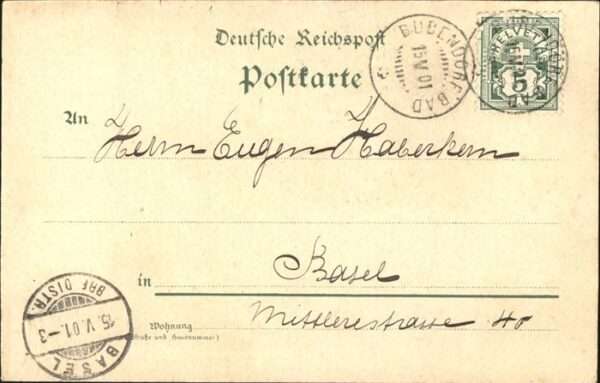 Deutsche Reichspost
Postkarte
BUBENDORF, BAD
15 V 01
HELVETIA
5
An Herrn Eugen Haberkern
in Basel
Mittlerestrasse 40
Wohnung
(Straße und Hausnummer)
BASEL
15. V. 01.–3
BRF. DISTR.